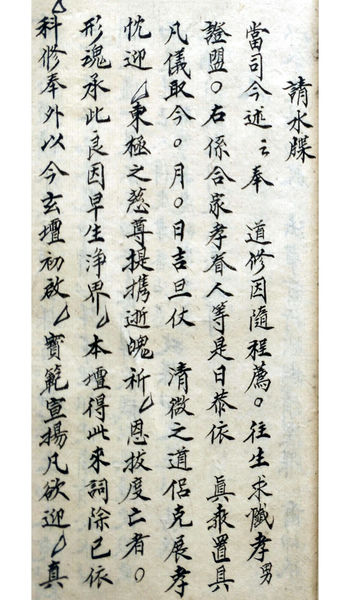 請水牒
當司今述〻奉　道修因隨程薦○往生求懺孝男
證盟○右係合家孝眷人等是日恭依　眞乘置具
凡儀取今○月○日吉旦仗　清微之道侶克展孝
忱迎東極之慈尊提携逝魄祈恩拔度亡者○
形魂承此良因早生淨界本壇得此來詞除已依
科修奉外以今玄壇初啟寶範宣揚凡欲迎真